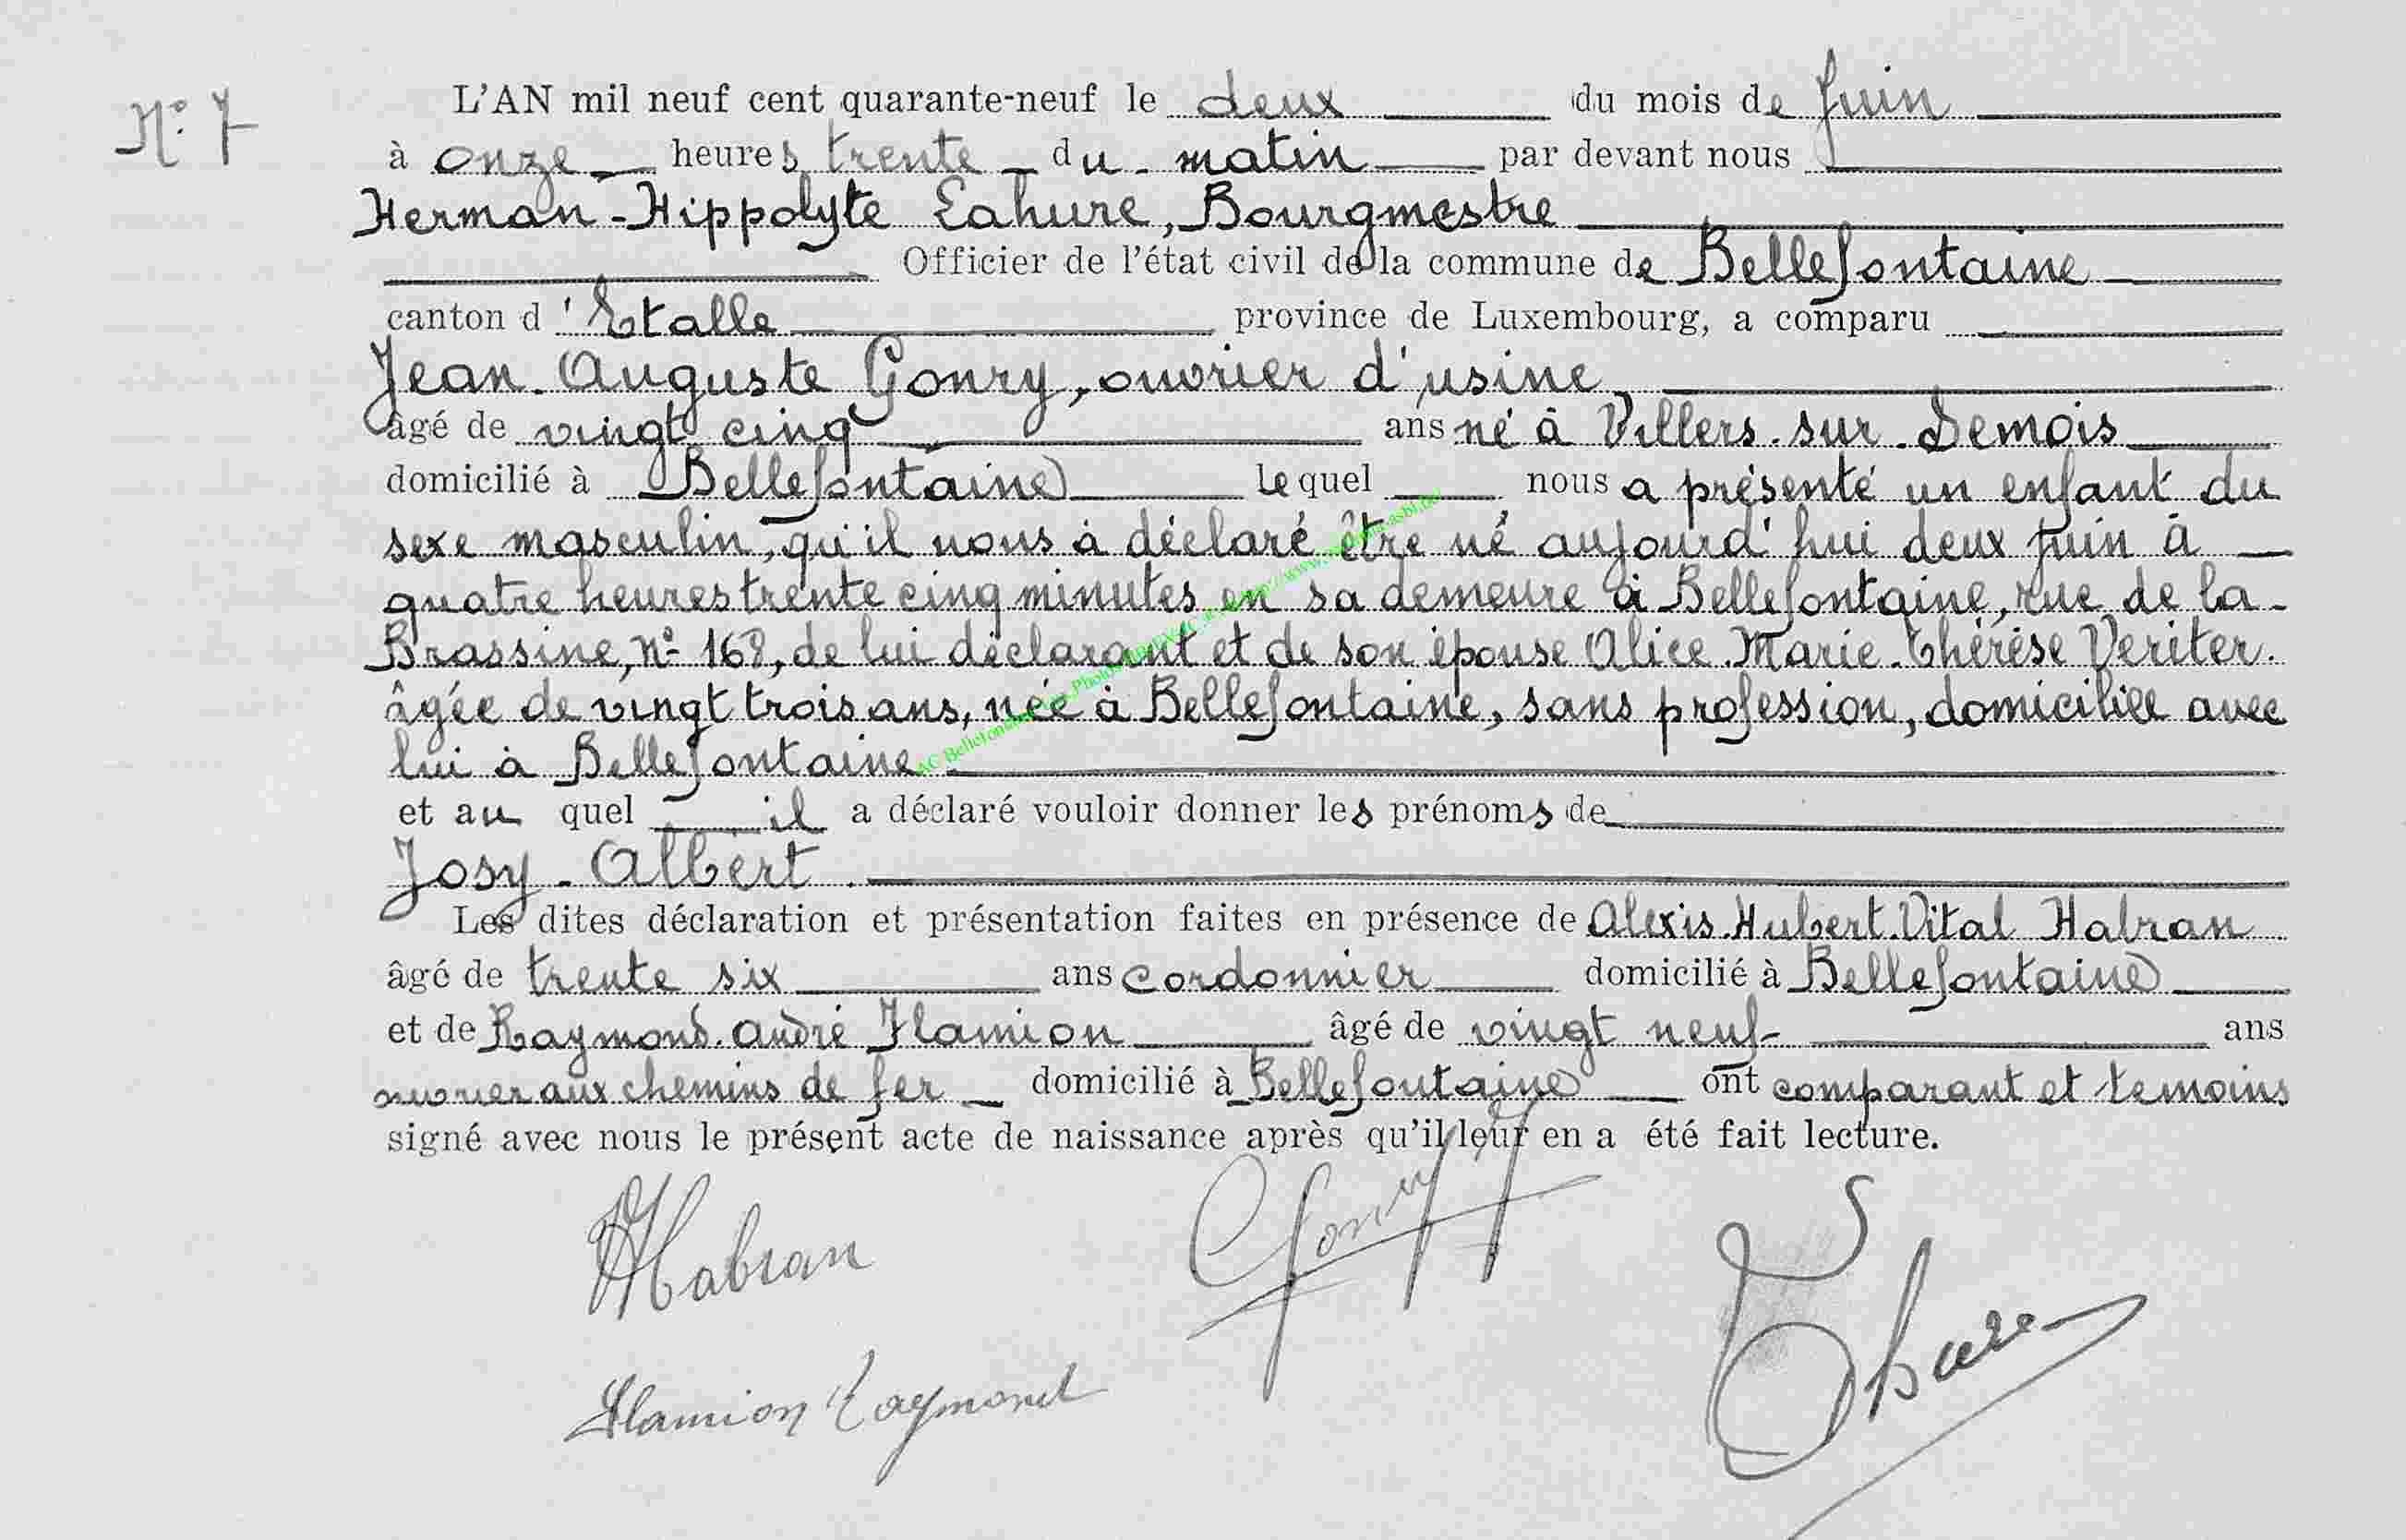 N° 7
L'AN mil neuf cent quarante-neuf le deux du mois de Juin
à onze heures trente du matin par devant nous
Herman-Hippolyte Lahure, Bourgmestre
Officier de l'état civil de la commune de Bellefontaine
canton d'Etalle province de Luxembourg, a comparu
Jean-Auguste Gonry, ouvrier d'usine
âgé de vingt cinq ans né à Villers-sur-Semois
domicilié à Bellefontaine lequel nous a présenté un enfant du
sexe masculin, qu'il nous à déclaré être né aujourd'hui deux juin à
quatre heures trente cinq minutes en sa demeure à Bellefontaine, rue de la
Brassine, n° 168, de lui déclarant et de son épouse Alice-Marie-Thérèse Veriter.
âgée de vingt trois ans, née à Bellefontaine, sans profession, domiciliée avec
lui à Bellefontaine
et au quel il a déclaré vouloir donner les prénoms de
Josy-Albert.
Les dites déclaration et présentation faites en présence de Alexis-Hubert-Vital Habran
âgé de trente six ans cordonnier domicilié à Bellefontaine
et de Raymond-André Flamion âgé de vingt neuf ans
ouvrier aux chemins de fer domicilié à Bellefontaine ont comparant et temoins
signé avec nous le présent acte de naissance après qu'il leur en a été fait lecture.
Habran
Gonry
Flamion Raymond
Lahure